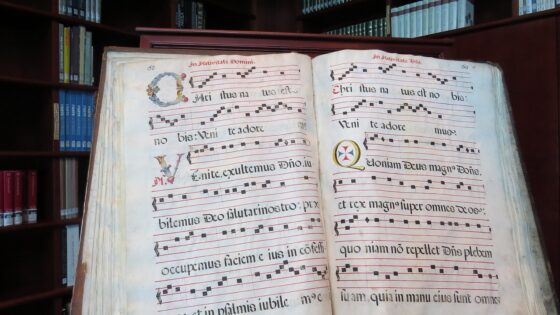 In Nativitate Domini.
CHri stus na tus est
no bis: Veni te adore
VEnite, exultemus Dño, iu
bilemus Deo salutari nostro:
occupemus faciem e ius in
et in psalmis iubile
In Nativitate Dñi.
Chri stus na tus est no bis:
Veni te adore mus:
Quoniam Deus magnꝰ Dñs.
et rex magnꝰ super omnes deos:
quo niam nõ repellet Dñs plebem
suam, quia in manu eius sunt omnes